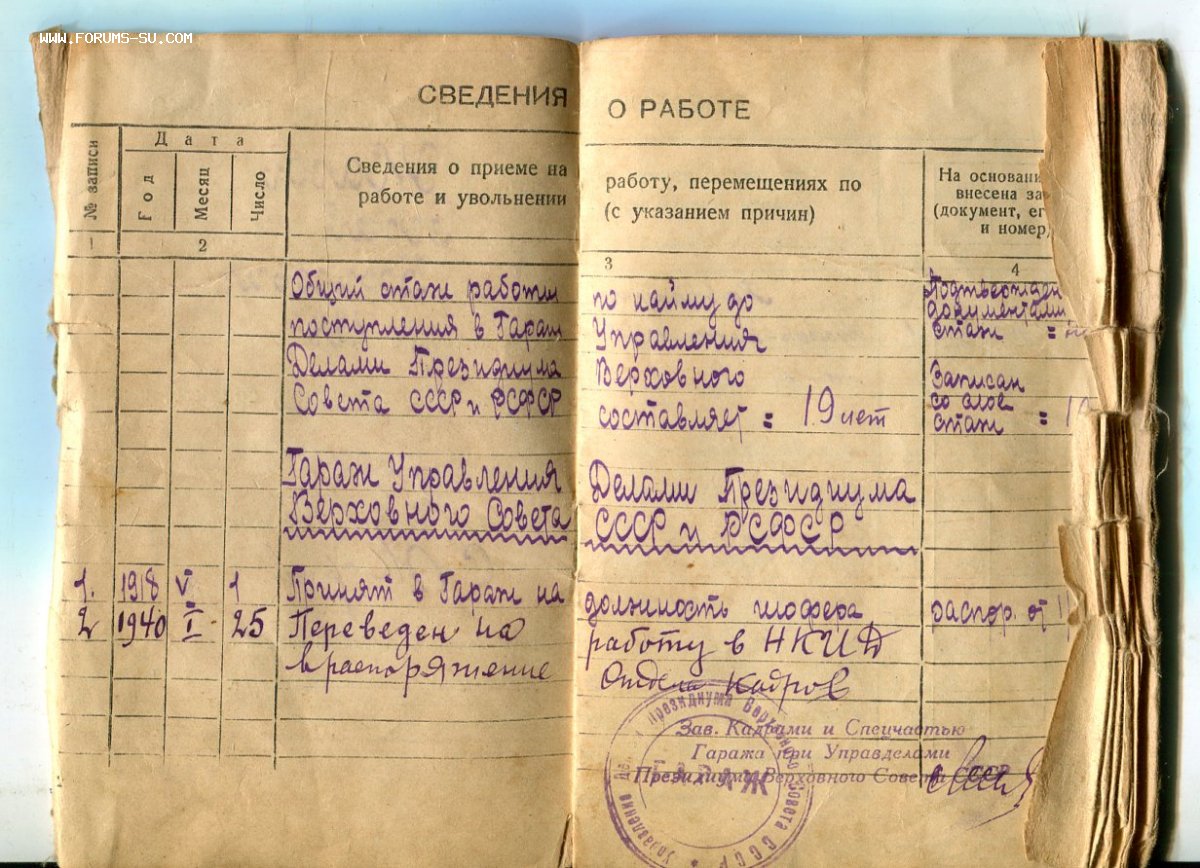 WWW.FORUMS-SU.COM
СВЕДЕНИЯ О РАБОТЕ
№ записи
Дата
Год
Месяц
Число
Сведения о приеме на работу, перемещениях по
работе и увольнении (с указанием причин)
На основани
внесена за
(документ, ег
и номер)
1 2 3 4
Общий стаж работы по найму до
поступления в Гараж Управления
Делами Президиума Верховного
Совета СССР и РСФСР составляет = 19 лет
Подтвержден
документами
стаж =
Записан
со слов
стаж = 1
Гараж Управления Делами Президиума
Верховного Совета СССР и РСФСР
1. 1918 V 1 Принят в Гараж на должность шофера распор. от
2 1940 I 25 Переведен на работу в НКИД
в распоряжение Отдела Кадров
Зав. Кадрами и Спецчастью
Гаража при Управделами
Президиума Верховного Совета СССР
Управление Делами Президиума Верховного Совета СССР
ГАРАЖ